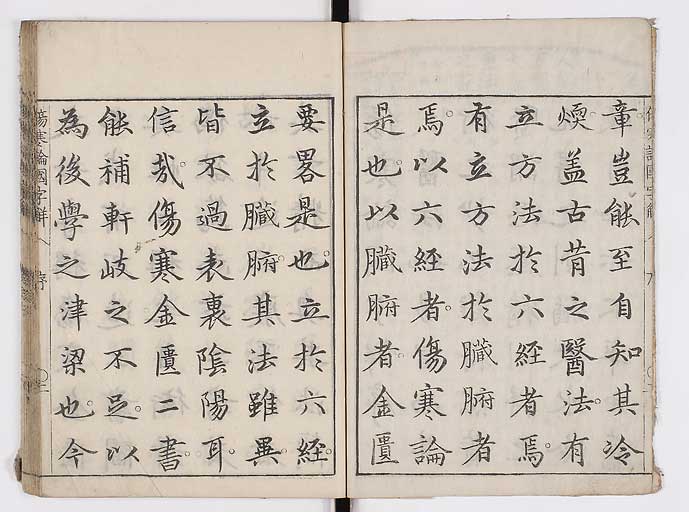 章豈能至自知其冷
煗蓋古昔之醫法。有
立方法於六經者焉。
有立方法於臟腑者
焉。以六經者。傷寒論
是也。以臟腑者。金匱
要畧是也。立於六經。
立於臟腑。其法雖異。
皆不過表裏陰陽耳。
信哉。傷寒金匱二書
能補軒岐之不足。以
為後學之津梁也。今
傷寒論國字解 序